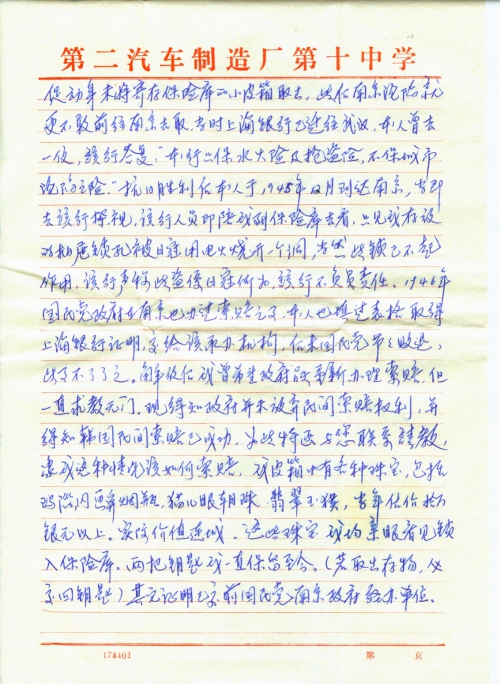 第二汽车制造厂第十中学
促初年未将寄存保险库的小皮箱取去,此后南京沦陷我就
更不敢前往南京去取,当时上海银行已迁往武汉,本人曾去
一次,该行答复:“本行只保水火险及抢盗险,不保城市
沦陷之险”抗日胜利后本人于1945年12月到达南京,当即
去该行探视,该行人员即陪我到保险库去看,只见我存放
的柜屉锁孔被日寇用电火烧开一个洞,当然此锁已不起
作用。该行声称此盗系日寇所为,该行不负责任。1946年
国民党政府在南京也办过索赔之事,本人也填过表格取得
上海银行证明,交给该承办机构,后来国民党节节败退,
此事不了了之。解放后我曾希望政府能重新办理索赔,但
一直求教无门。现得知政府并未放弃民间索赔权利,并
得知韩国民间索赔已成功,为此特函与您联系请教,
象我这种情况该如何索赔。我皮箱中有各种珠宝,包括
玛瑙内画鼻烟瓶,猫儿眼朝珠 翡翠玉镯,当年估价拾万
银元以上。实际价值连城。这些珠宝 我均亲眼看见锁
入保险库。两把钥匙我一直保留至今。(若取出存物,必
须四钥匙)其它证明已交前国民党南京政府经办单位。
178401
第 页